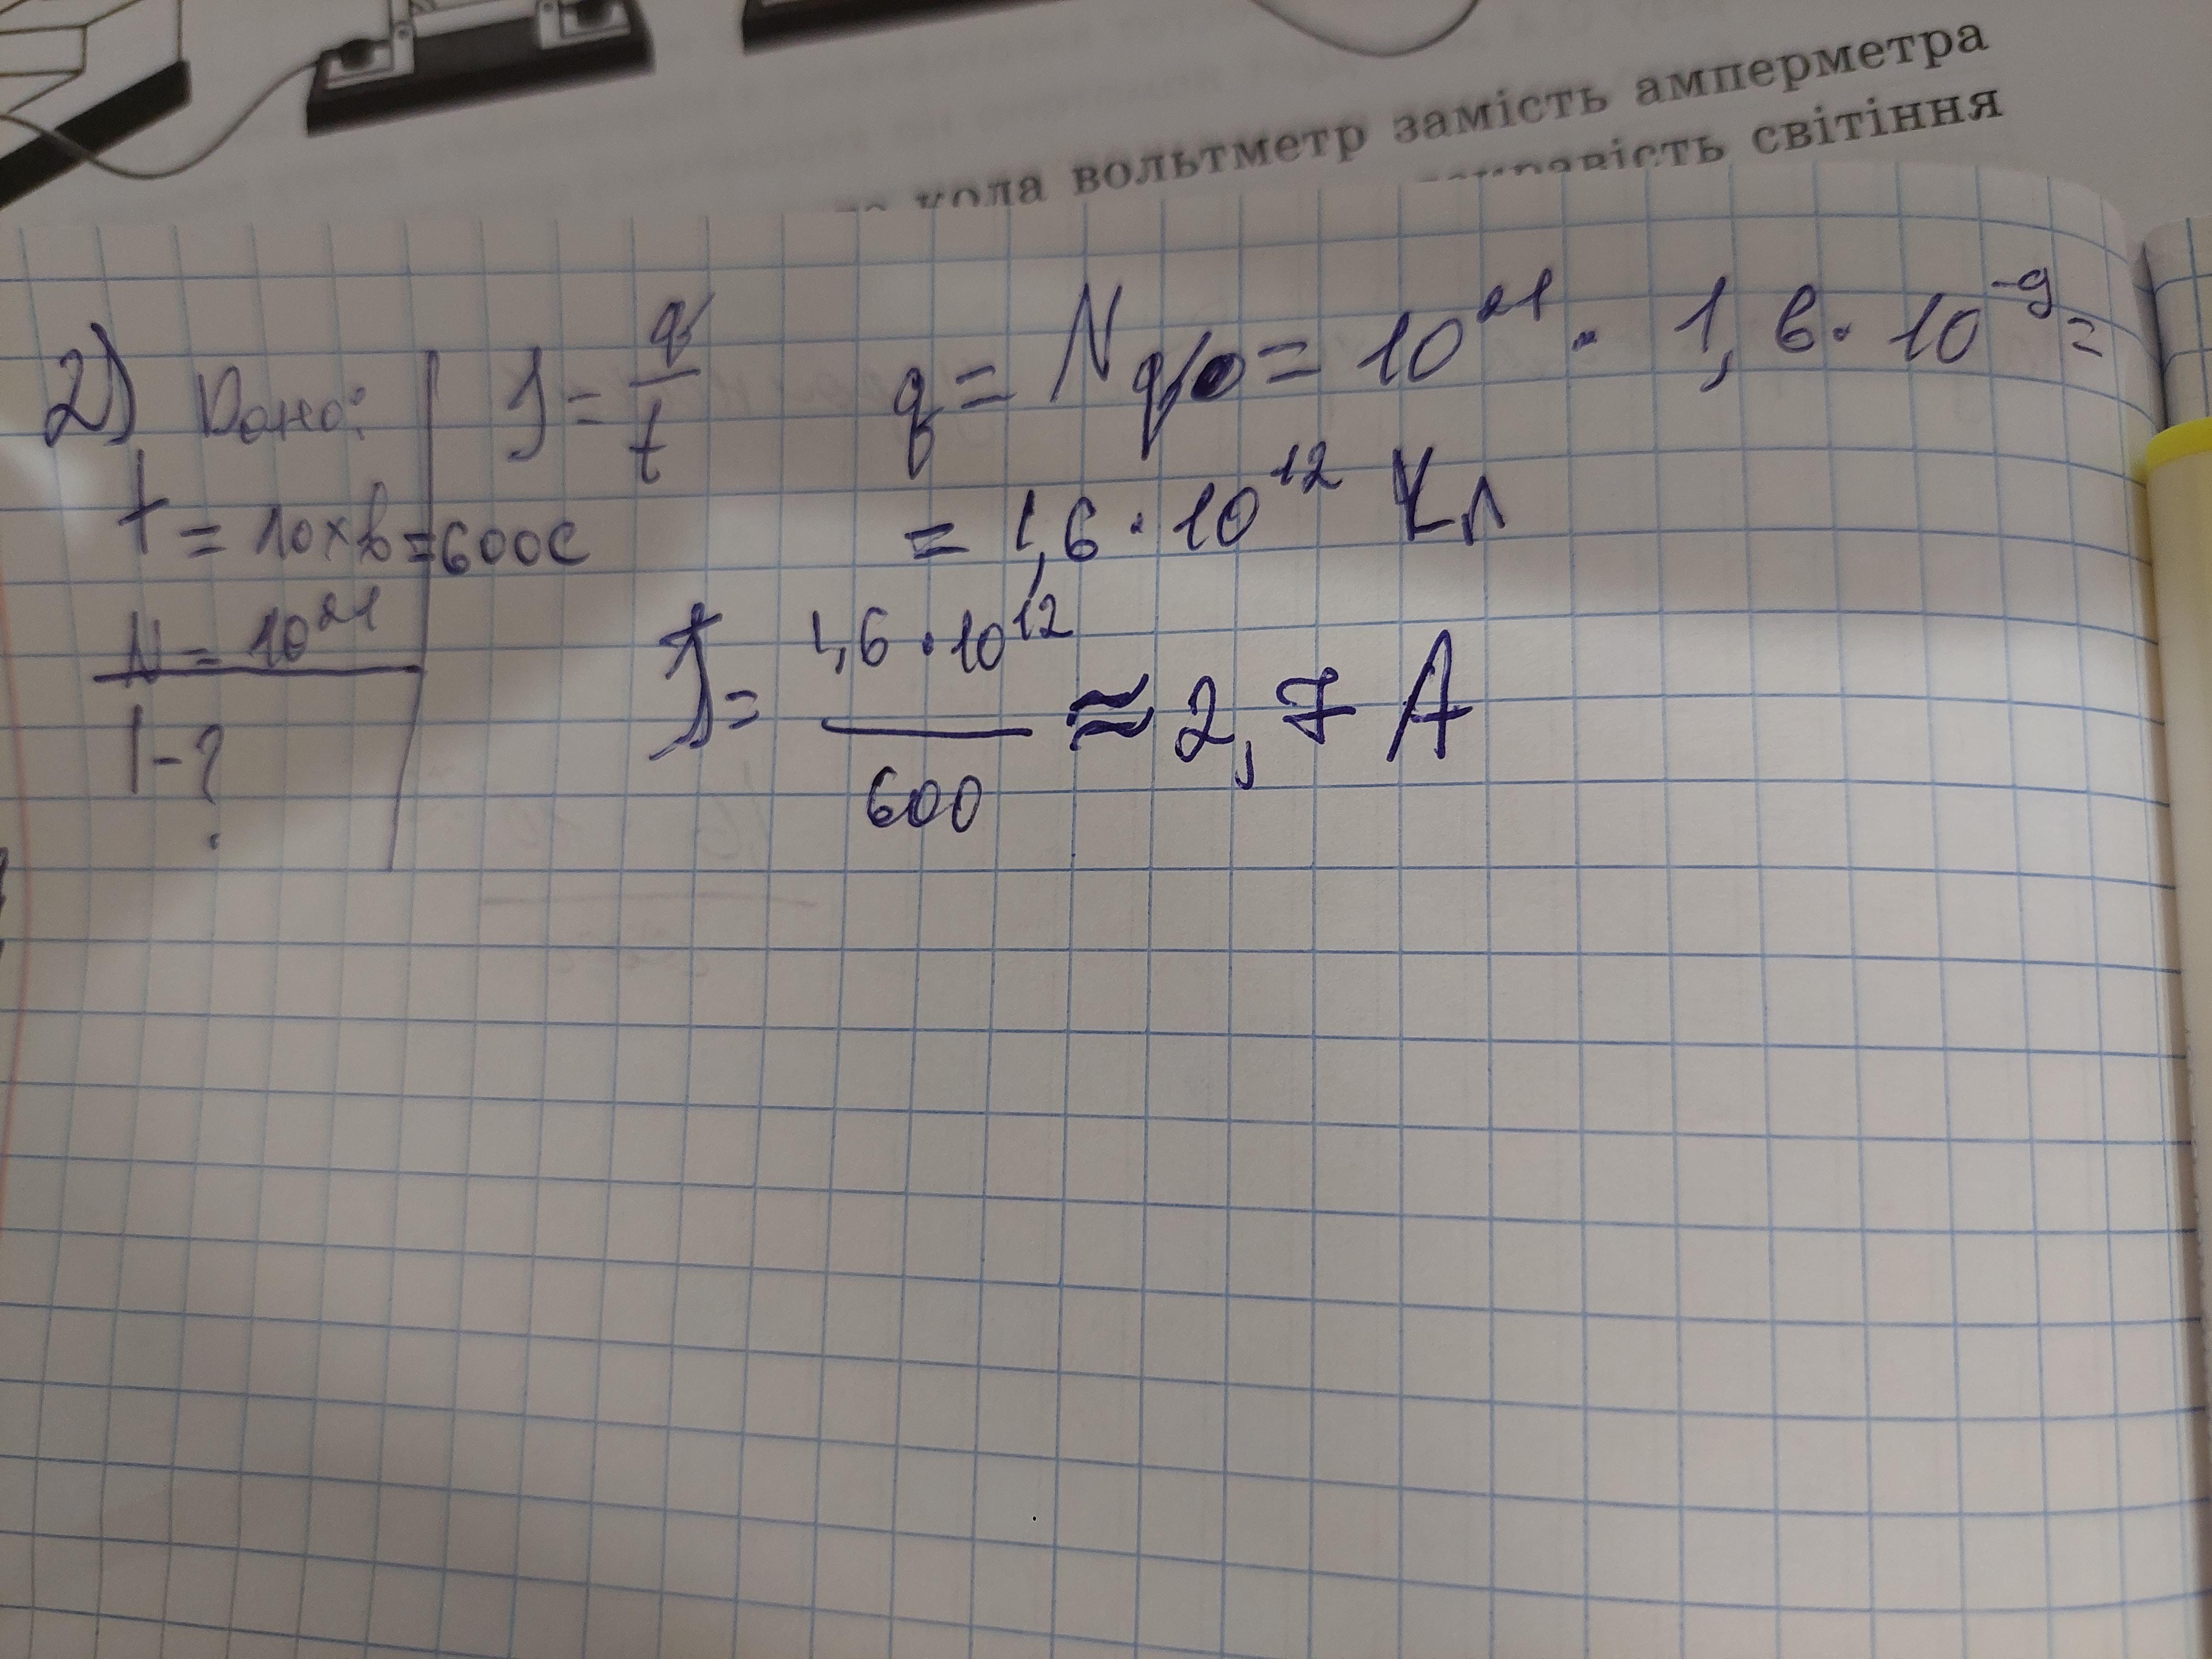 кола вольтметр замість амперметра
світіння
2) Дано:
t = 10 хв = 600 с
N = 10²¹
I - ?
I = q/t
q = Nq₀ = 10²¹ · 1,6 · 10⁻⁹ =
= 1,6 · 10¹² Кл
I = 1,6 · 10¹² / 600 ≈ 2,7 A